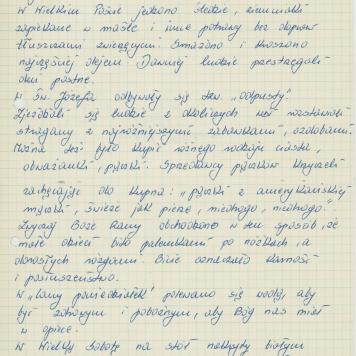 W Wielkim Poście jedzono śledzie, ziemniaki
zapiekane w maśle i inne potrawy bez
tłuszczami zwierzęcymi. Smażono i kraszono
najczęściej olejem. Dawniej ludzie przestrzegali
dni postne.
W Św. Józefa odbywały się tzw. „odpusty".
Zjeżdżali się ludzie z okolicznych wsi rozstawiali
stragany z najróżniejszymi zabawkami, ozdobami.
Można też było kupić różnego rodzaju ciastka,
obwarzanki, pijawki. Sprzedawcy pijawków krzyczeli
zachęcając do kupna: „pijawki z amerykańskiej
, świeże jak pierze, niedrogo, niedrogo".
Boże Rany obchodzono w ten sposób, że
małe dzieci bito palemkami po nóżkach, a
dorosłych rózgami. Bicie oznaczało karność
i posłuszeństwo.
W „lany poniedziałek" polewano się wodą, aby
być zdrowym i pobożnym, aby Bóg nas miał
w opiece.
W Wielką Sobotę na stół nakryty białym